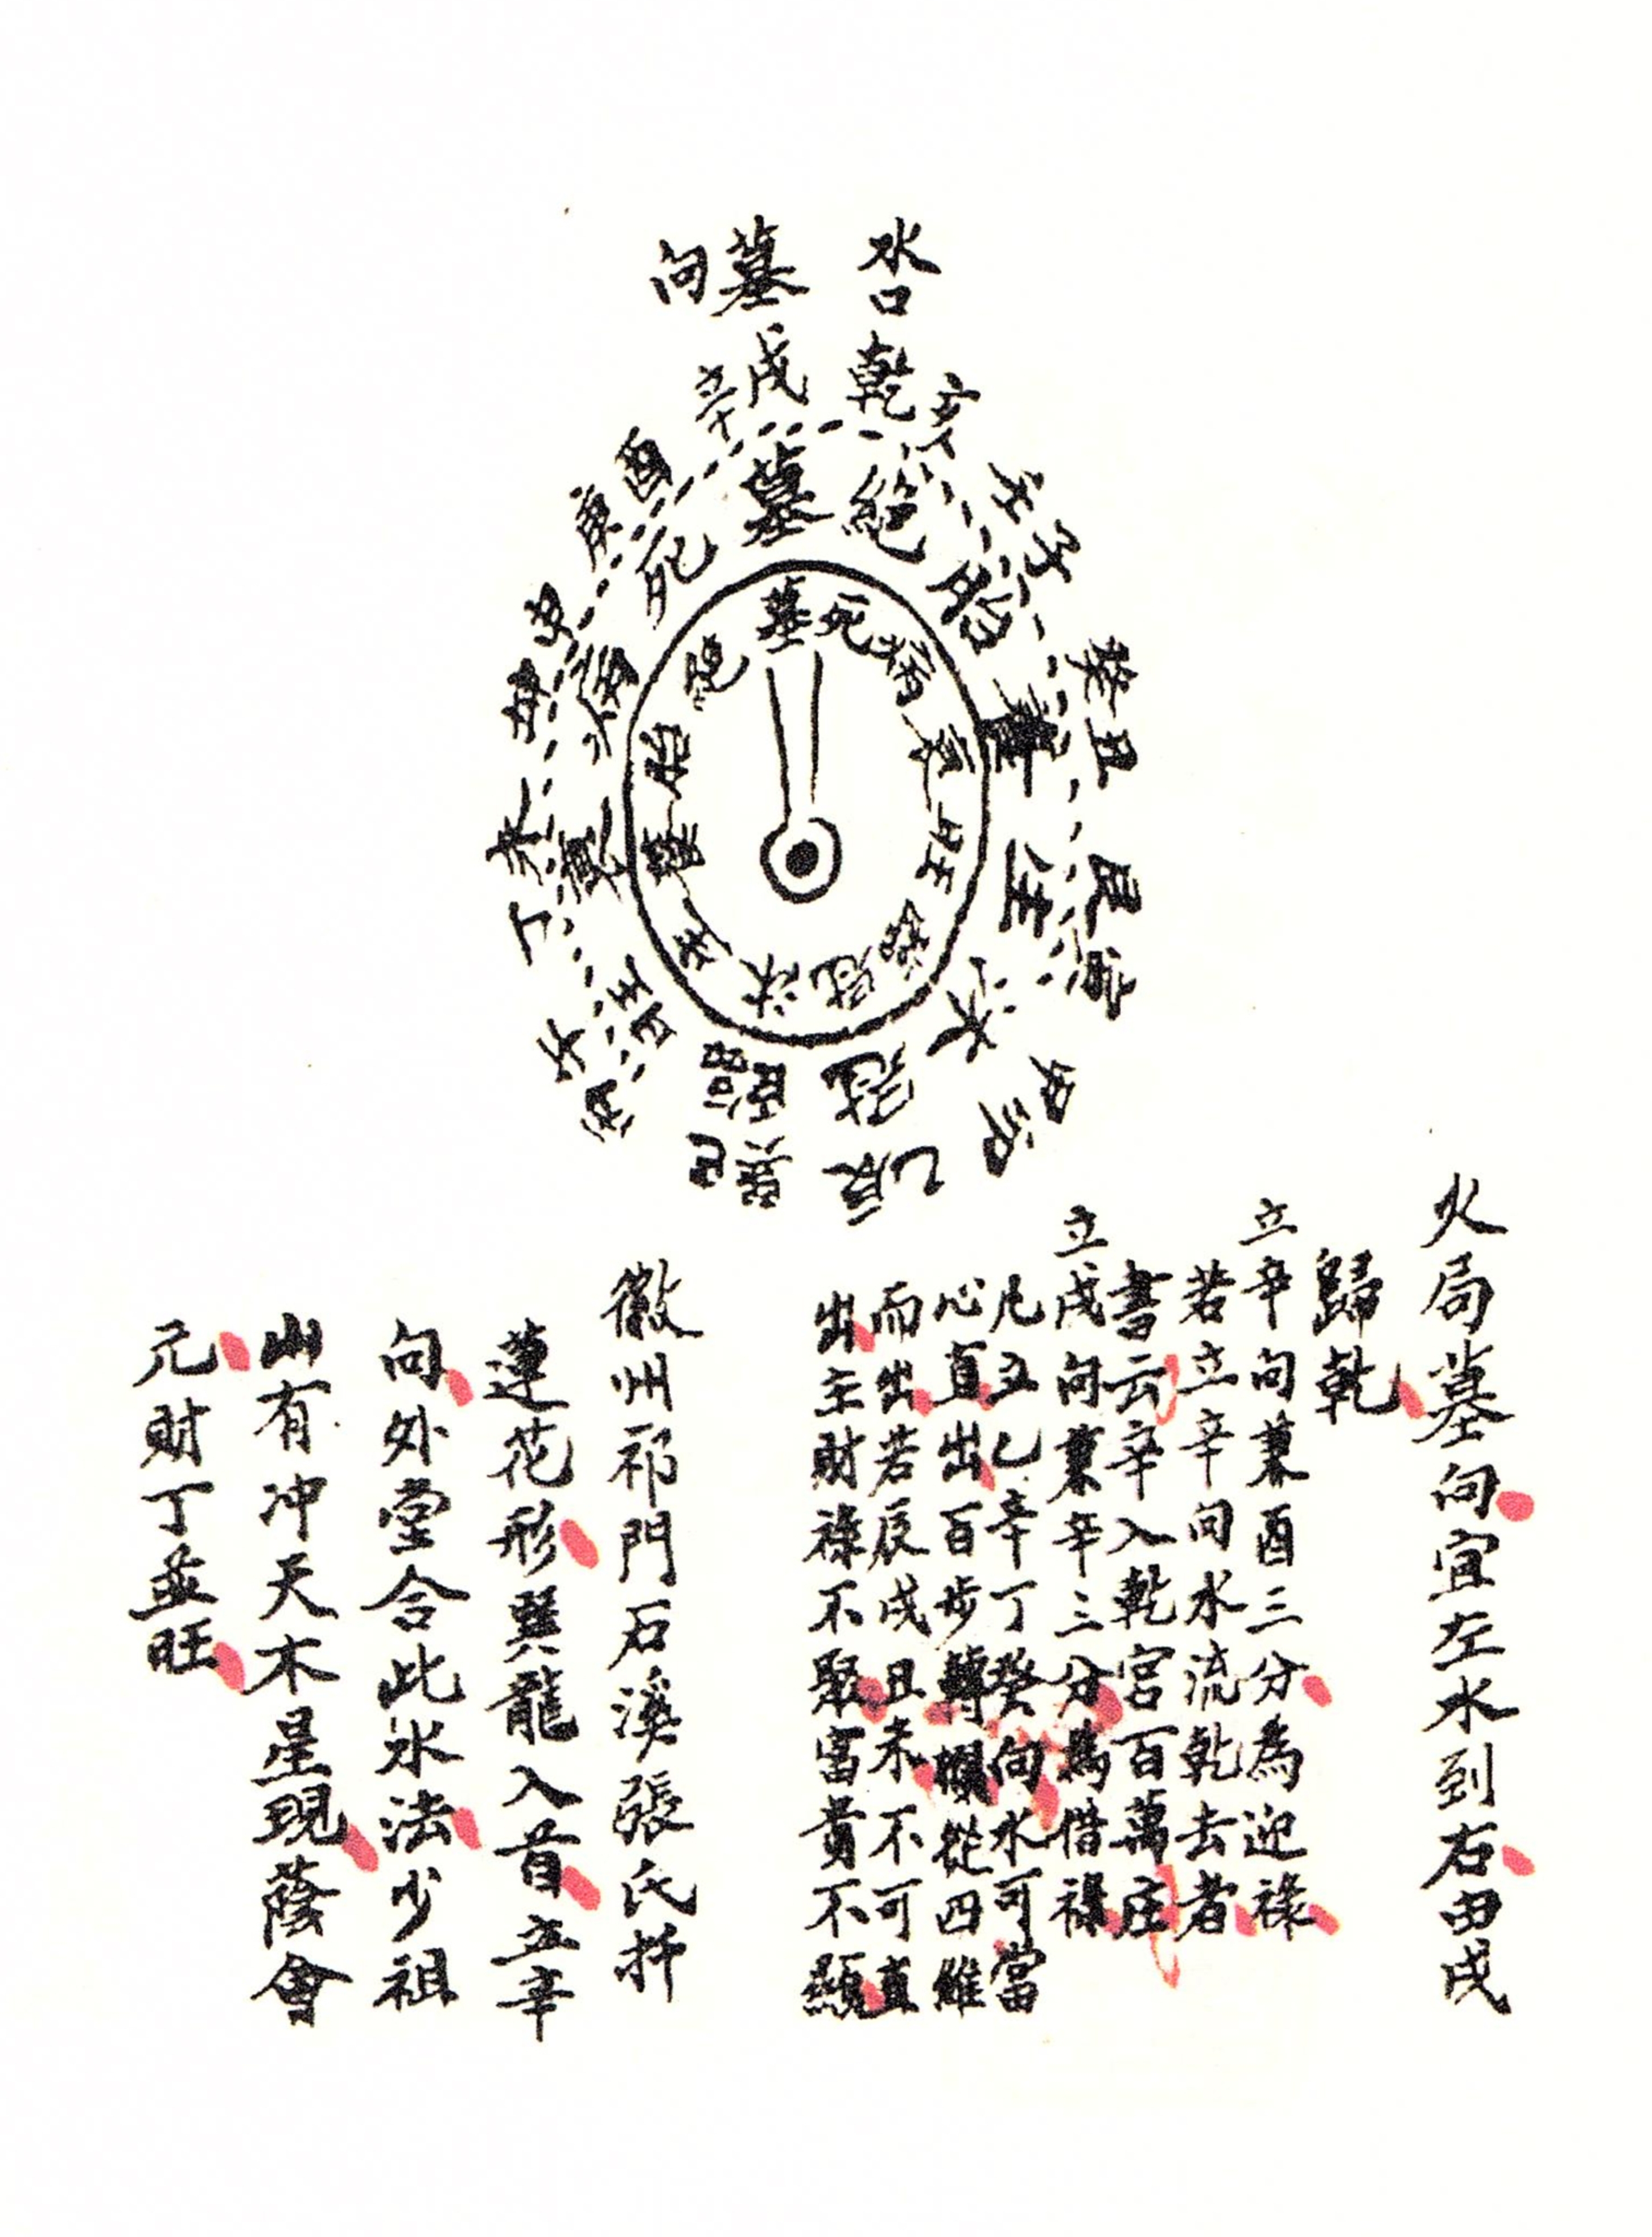 水口
墓向
亥
乾
戌
辛
酉
庚
申
坤
未
丁
午
丙
巳
巽
辰
乙
卯
甲
寅
艮
丑
癸
子
壬
絕
墓
死
病
衰
旺
臨官
冠
沐
生
養
胎
墓
死
病
衰
旺
臨官
冠
沐
生
養
胎
絕
火局墓向宜左水到右由戌
歸乾
立辛向兼酉三分為迎祿
若立辛向水流乾去者
書云辛入乾宮百萬庄
立戌向兼辛三分為借祿
凡立乙辛丁癸向水可當
心直出百步轉欄從四維
而出若辰戌丑未不可直
出主財祿不聚富貴不顯
徽州祁門石溪張氏扦
蓮花形巽龍入首立辛
向外堂合此水法少祖
山有冲天木星現蔭會
元財丁並旺